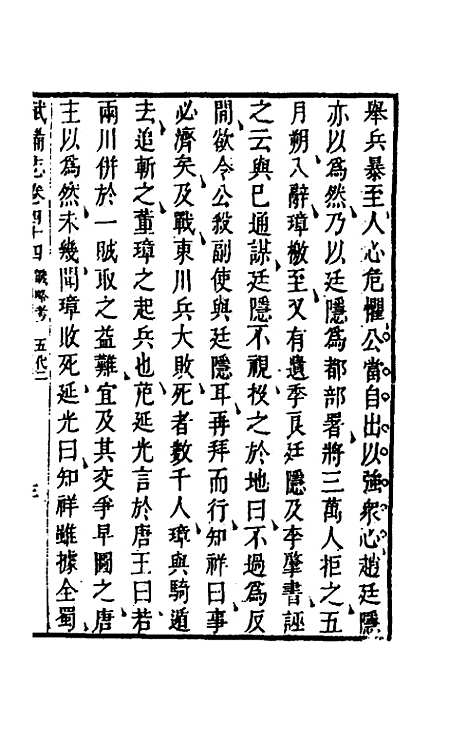 舉兵暴至人心危懼公當自出以強衆心趙廷隱
亦以為然乃以廷隱為都部署將三萬人拒之五
月朔入辭璋檄至又有遺季良廷隱及李肇書誣
之云與已通謀廷隱不視投之於地曰不過為反
間欲令公殺副使與廷隱耳再拜而行知祥曰事
必濟矣及戰東川兵大敗死者數千人璋與騎遁
去追斬之董璋之起兵也范延光言於唐王曰若
兩川併於一賊取之益難宜及其交爭早圖之唐
主以為然未幾聞璋敗死延光曰知祥雖據全蜀
武備志卷四十四 戰略考 五代二 三